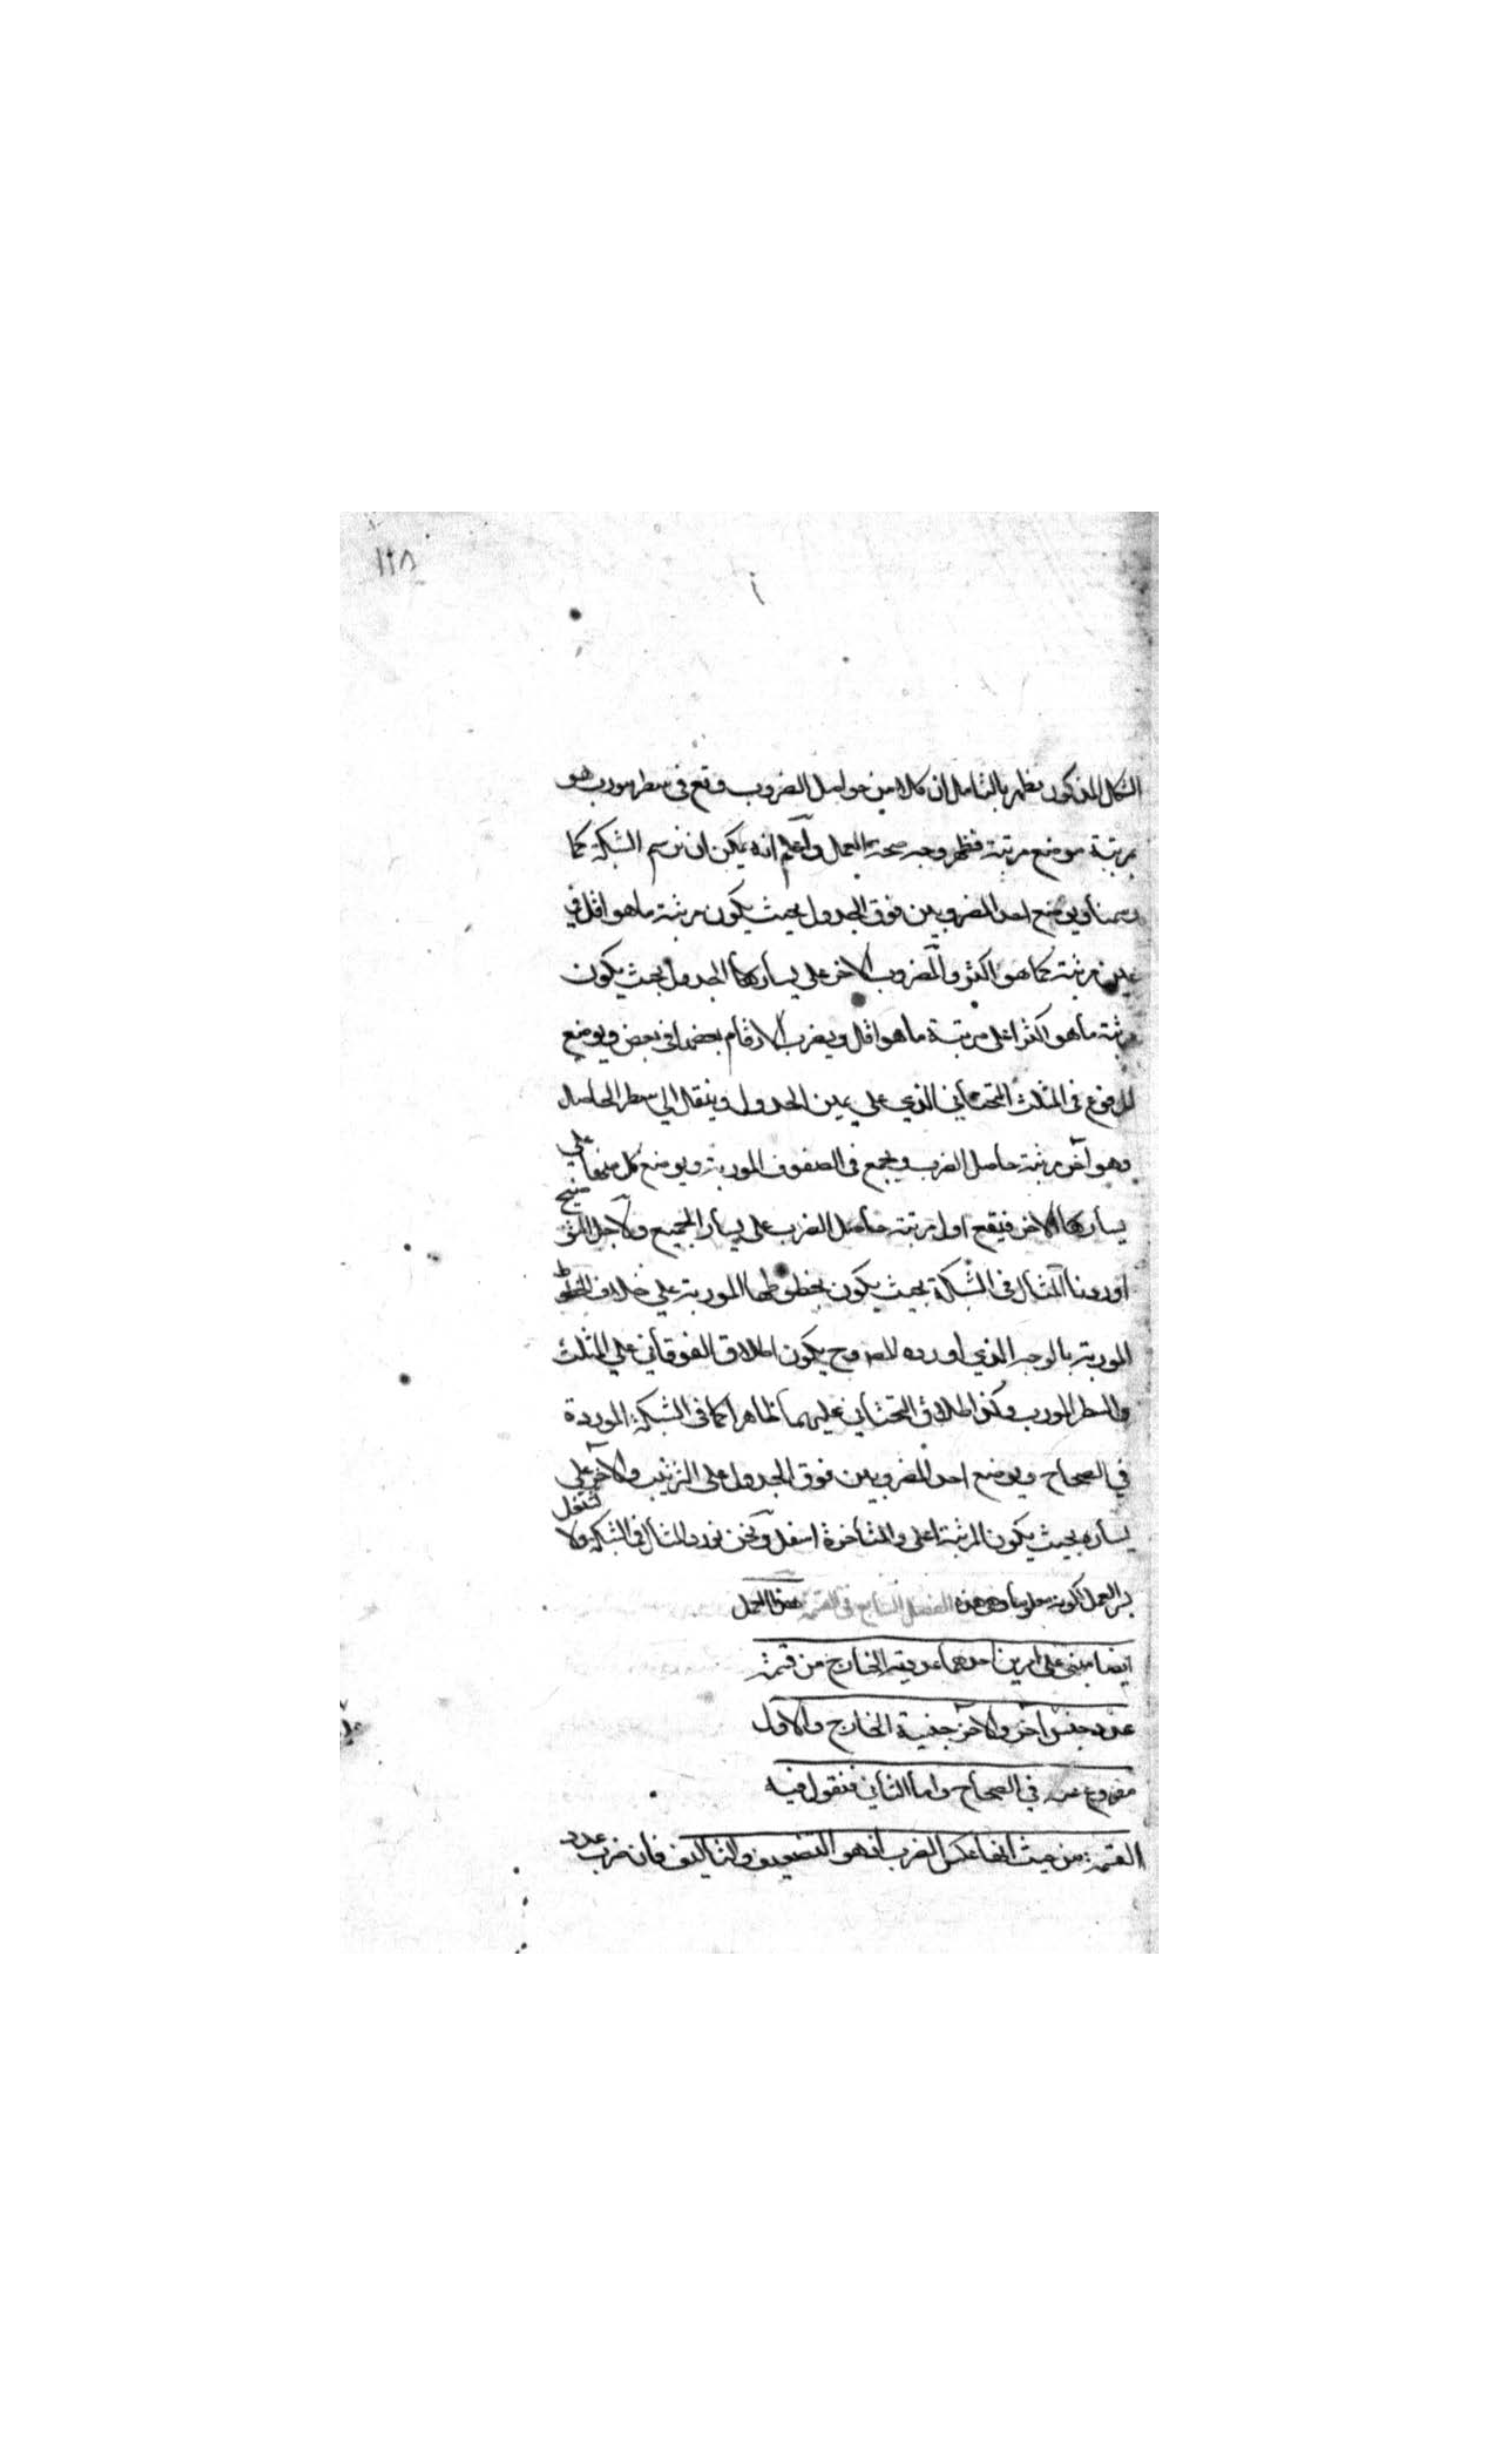 ١١٨
الشكل المذكور يظهر بالتامل ان كلا من حواصل الضروب وقع في سطر مورب هو
بمرتبة موضع مرتبته فظهر وجه صحة العمل واعلم انه يمكن ان نرسم الشبكة كما
رسمنا ويوضع احد المضروبين فوق الجدول بحيث يكون مرتبة ما هو اقل في
يمين مرتبة ما هو اكثر والمضروب الاخر على يسار الجدول بحيث يكون
مرتبة ما هو اكثر اعلى مرتبة ما هو اقل ويضرب الارقام بعضها في بعض ويوضع
المرفوع في المثلث التحتاني الذي علي يمين الجدول وينقل الي سطر الحاصل
وهو آخر مرتبة حاصل الضرب ويجمع في الصفوف الموربة ويوضع كل منها علي
يسار الاخر فيقع اول مرتبة حاصل الضرب على يسار الجميع ولاجل التوضيح
اوردنا المثال في الشبكة بحيث يكون خطوطها الموربة علي خلاف الخطوط
الموربة بالوجه الذي اورده المص وح يكون اطلاق الفوقاني علي المثلث
والسطر المورب وكذا اطلاق التحتاني عليهما ظاهرا كما في الشبكة الموردة
في الصحاح ويوضع احد المضروبين فوق الجدول على الترتيب والآخر على
يساره بحيث يكون المرتبة اعلى والمتاخرة اسفل ونحن نورد المثال في الشبكة ولا نشتغل
العمل لكونه معلوما وهي هذه الفصل السابع في القسمة هذا العمل
ايضا مبني على امرين احدهما عددية الخارج من قسمة
عدد جنس آخر والآخر جنسية الخارج والاول
مفروغ عنه في الصحاح واما الثاني فنقول فيه
القسمة من حيث انها عكس الضرب اذ هو التضعيف والتاليف فان ضرب عدد